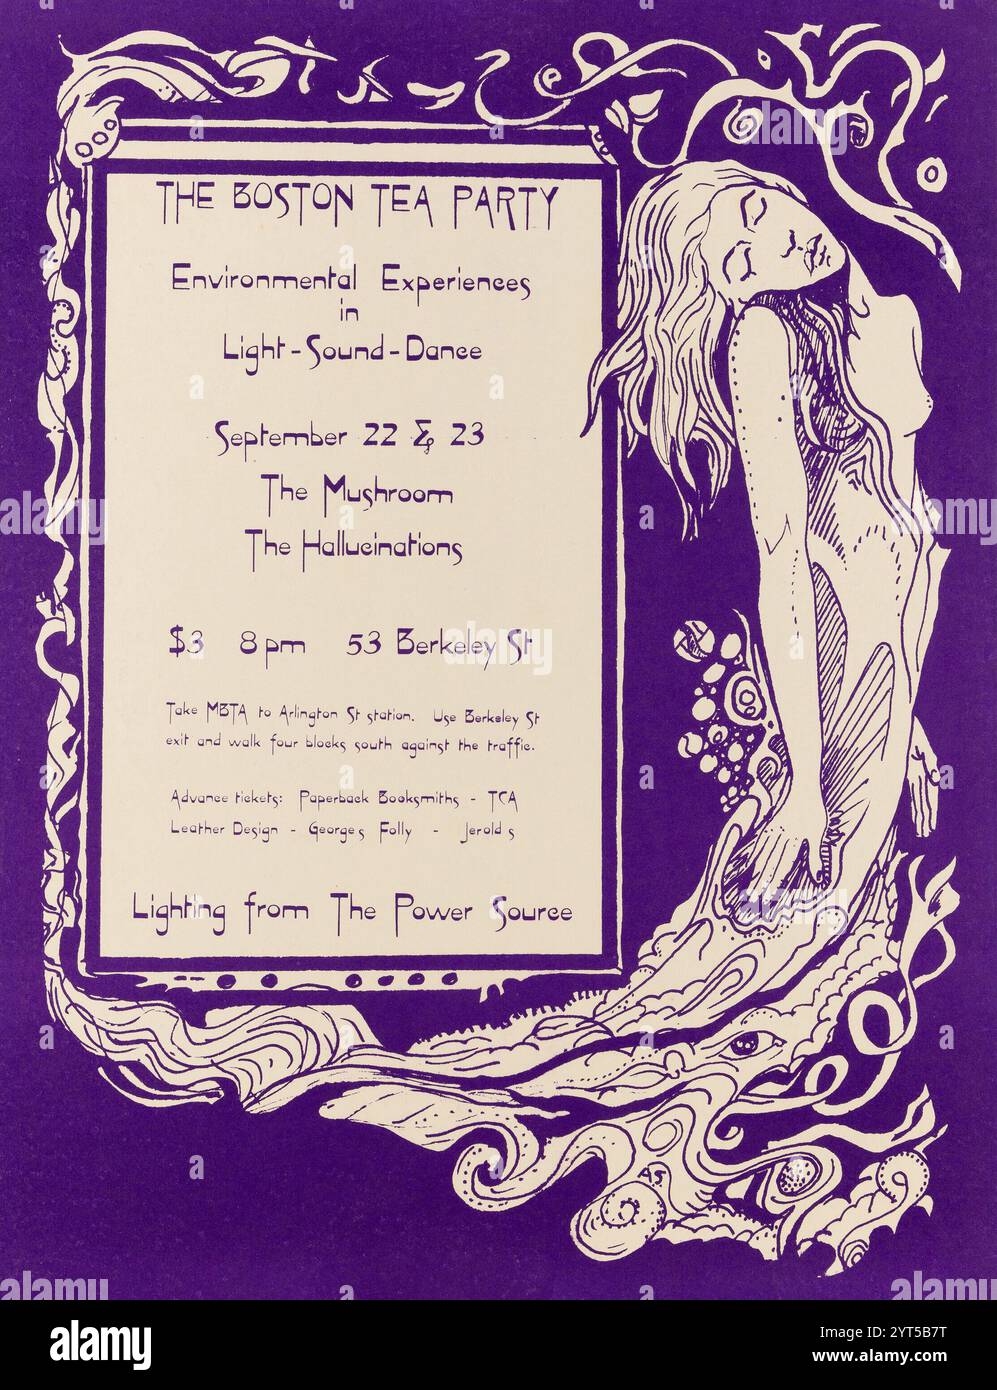 THE BOSTON TEA PARTY
Environmental Experiences
in
Light-Sound-Dance
September 22 & 23
The Mushroom
The Hallucinations
$3 8pm 53 Berkeley St
Take MBTA to Arlington St station. Use Berkeley St
exit and walk four blocks south against the traffic.
Advance tickets: Paperback Booksmiths - TCA
Leather Design - Georges Folly - Jerold s
Lighting from The Power Source
AS
alamy
alamy
Image ID: 2YT5B7T
www.alamy.com